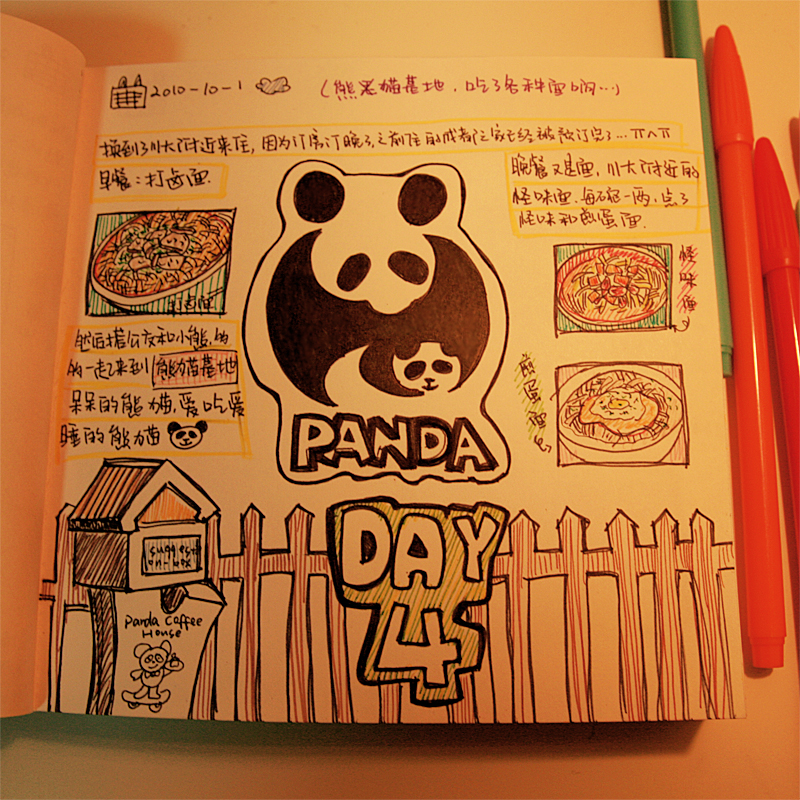 2010-10-1
(熊黑猫基地,吃了各种面啊…)
换到了川大附近来住,因为订房订晚了,之前住的成都之家已经被预订完了…π^π
早餐:打卤面.
打卤面
然后搭公交和小熊,的
的一起来到熊猫基地
呆呆的熊猫,爱吃爱
睡的熊猫
晚餐又是面,川大附近的
怪味面.每碗一两,点了
怪味和煎蛋面.
怪味面
煎蛋面
PANDA
DAY
4
suggesti
on-box
Panda Coffee
House